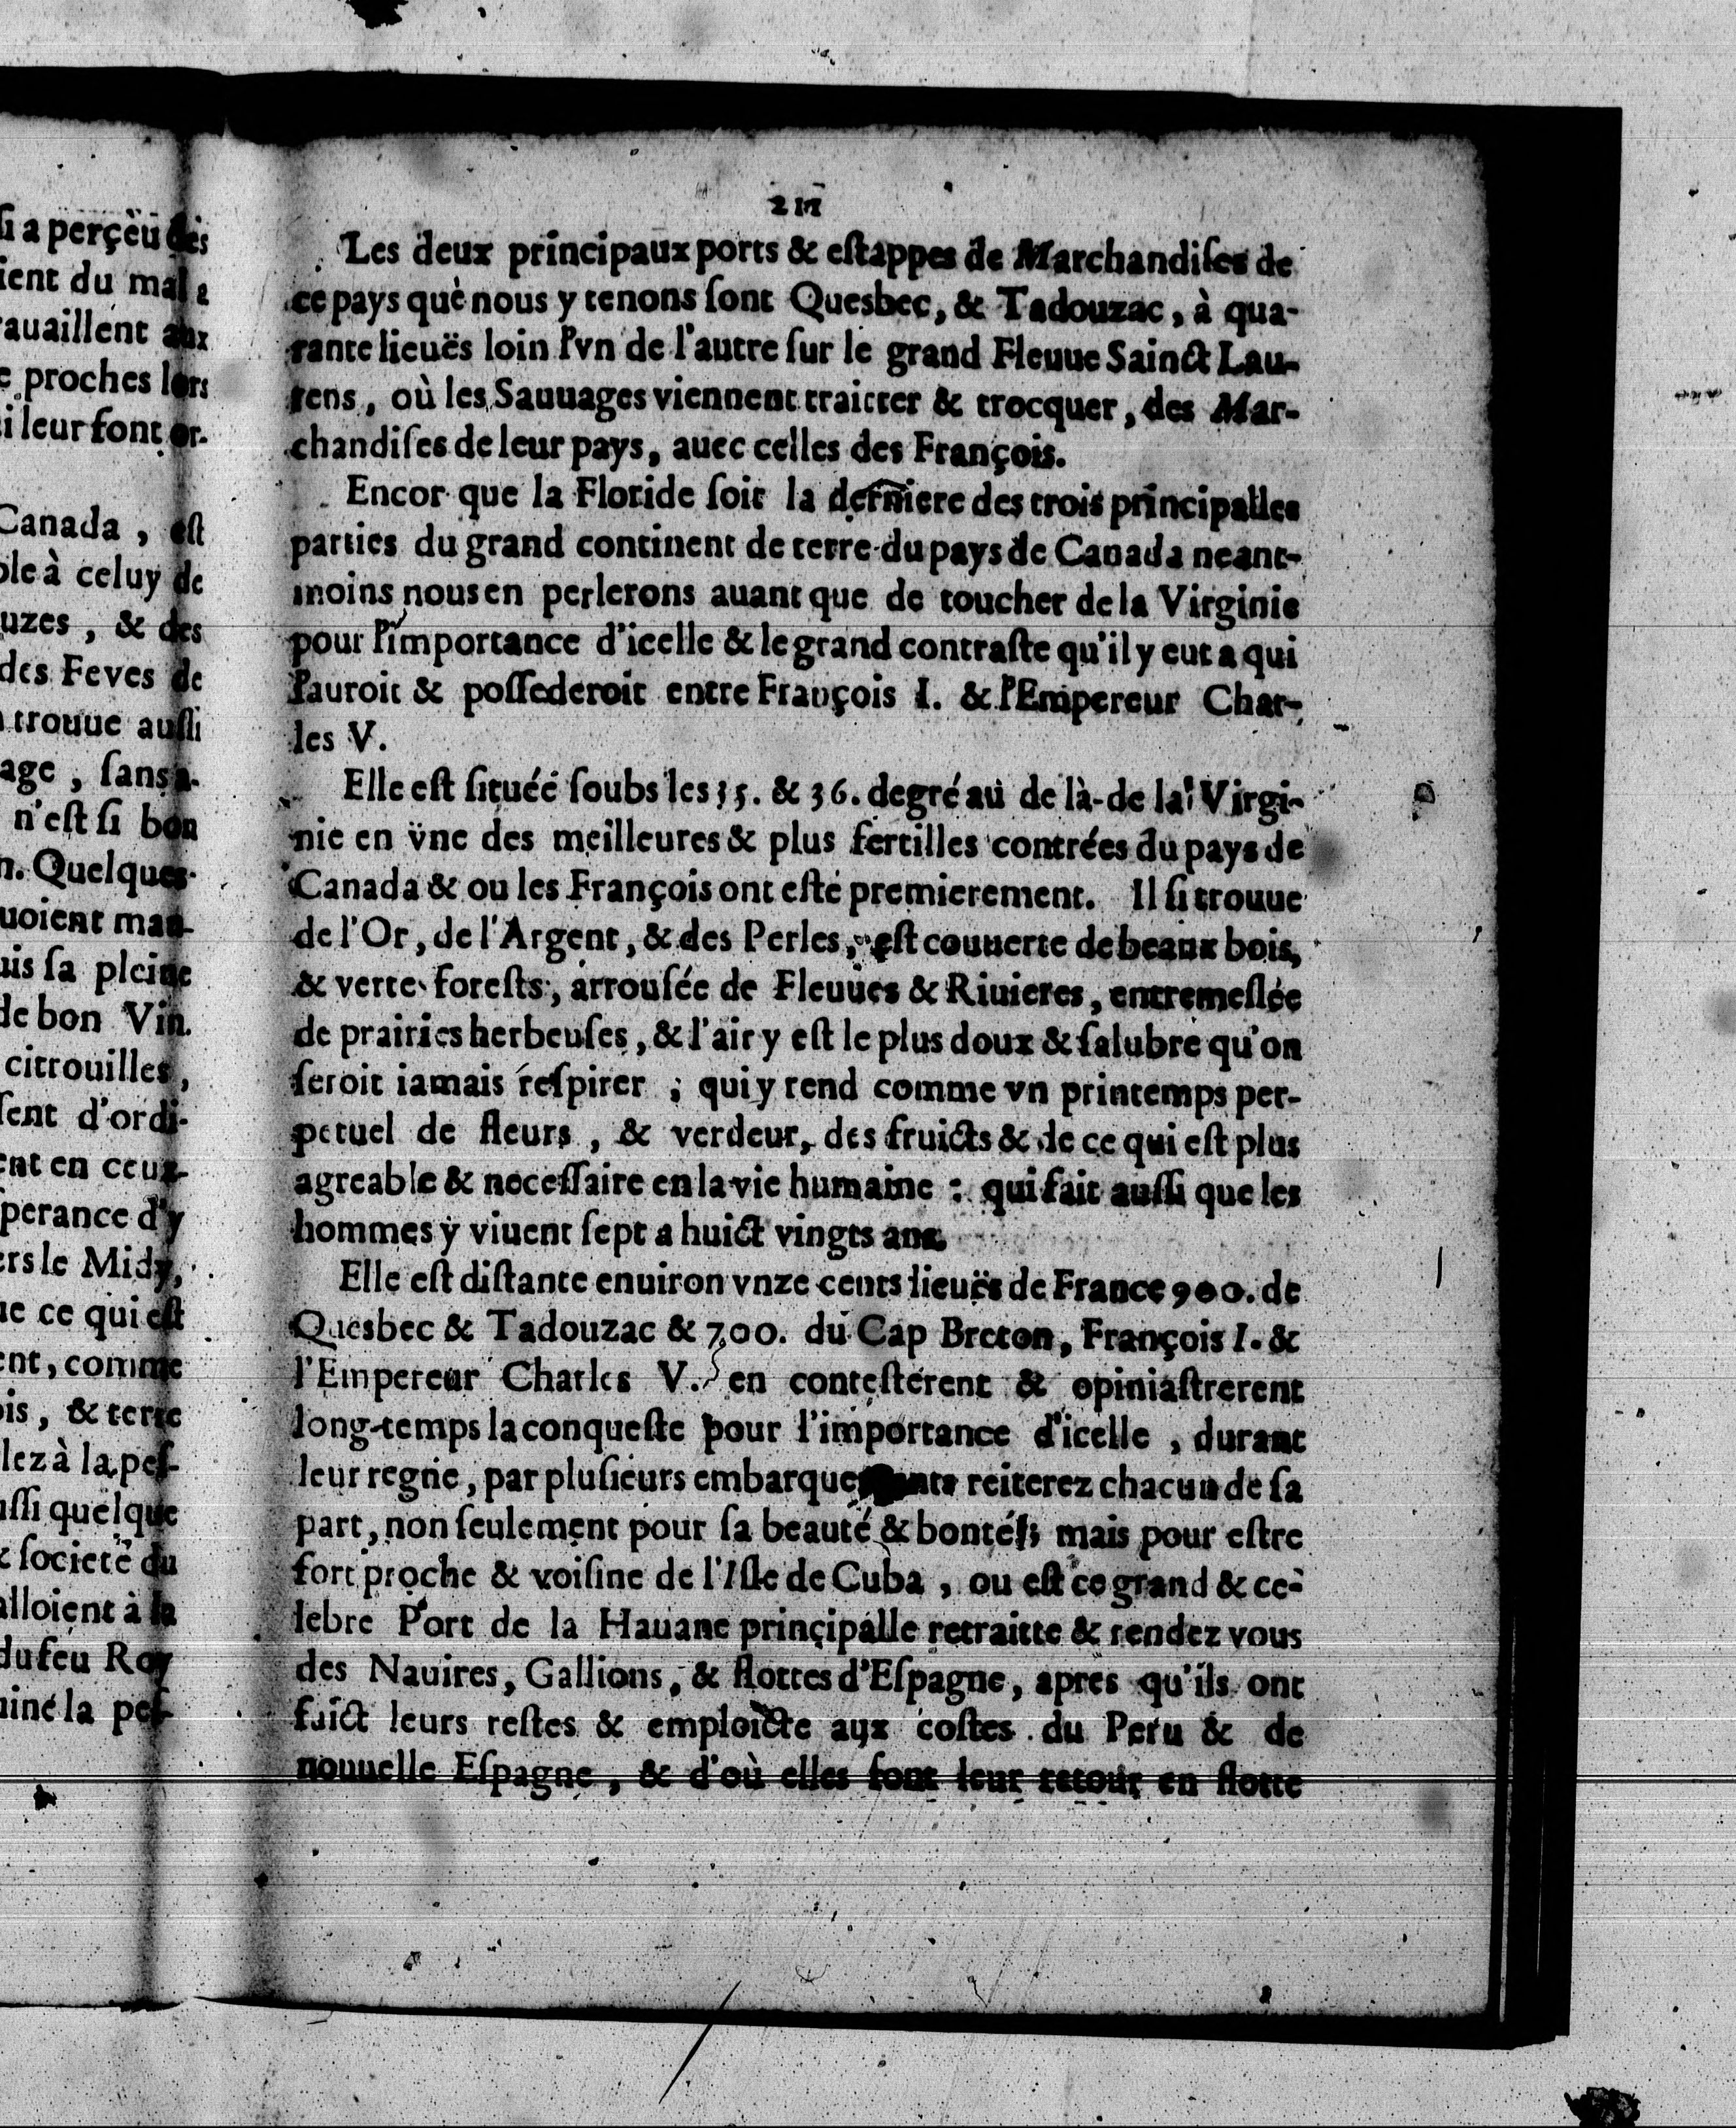 211
Les deux principaux ports & eſtappes de Marchandiſes de
ce pays què nous y tenons ſont Quesbec, & Tadouzac, à qua-
rante lieuës loin l'vn de l'autre ſur le grand Fleuue Sainct Lau-
rens, où les Sauuages viennent traicter & trocquer, des Mar-
chandiſes de leur pays, auec celles des François.
Encor que la Floride ſoit la derniere des trois principalles
parties du grand continent de terre du pays de Canada neant-
moins nous en perlerons auant que de toucher de la Virginie
pour l'importance d'icelle & le grand contraſte qu'il y eut a qui
l'auroit & poſſederoit entre François I. & l'Empereur Char-
les V.
Elle eſt ſituéé ſoubs les 35. & 36. degré au de là-de la Virgi-
nie en vne des meilleures & plus fertilles contrées du pays de
Canada & ou les François ont eſté premierement. Il ſi trouue
de l'Or, de l'Argent, & des Perles, eſt couuerte de beaux bois,
& verte foreſts, arrouſée de Fleuues & Riuieres, entremeſlée
de prairies herbeuſes, & l'air y eſt le plus doux & ſalubre qu'on
ſeroit iamais reſpirer ; qui y rend comme vn printemps per-
petuel de fleurs, & verdeur, des fruicts & de ce qui eſt plus
agreable & neceſſaire en la vie humaine : qui fait auſſi que les
hommes y viuent ſept a huict vingts ans.
Elle eſt diſtante enuiron vnze cents lieuës de France 900. de
Quesbec & Tadouzac & 700. du Cap Breton, François I. &
l'Empereur Charles V. en conteſterent & opiniaſtrerent
long-temps la conqueſte pour l'importance d'icelle, durant
leur regne, par pluſieurs embarquements reiterez chacun de ſa
part, non ſeulement pour ſa beauté & bonté, mais pour eſtre
fort proche & voiſine de l'Iſle de Cuba, ou eſt ce grand & ce-
lebre Port de la Hauane principalle retraitte & rendez vous
des Nauires, Gallions, & flottes d'Eſpagne, apres qu'ils ont
faict leurs reſtes & emploicte aux coſtes du Peru & de
nouuelle Eſpagne, & d'où elles font leur retour en flotte
ſi a perçëu des
ient du mal
auaillent aux
e proches lors
i leur font or-
Canada, eſt
ble à celuy de
uzes, & des
des Feves de
trouue auſſi
age, ſans a-
n'eſt ſi bon
n. Quelques-
uoient man-
uis ſa pleine
de bon Vin.
citrouilles,
ſent d'ordi-
ent en ceux-
perance d'y
ers le Midy,
ue ce qui eſt
ent, comme
ois, & terre
lez à la peſ-
uſſi quelque
& societé du
alloient à la
du feu Roy
iné la peſ-